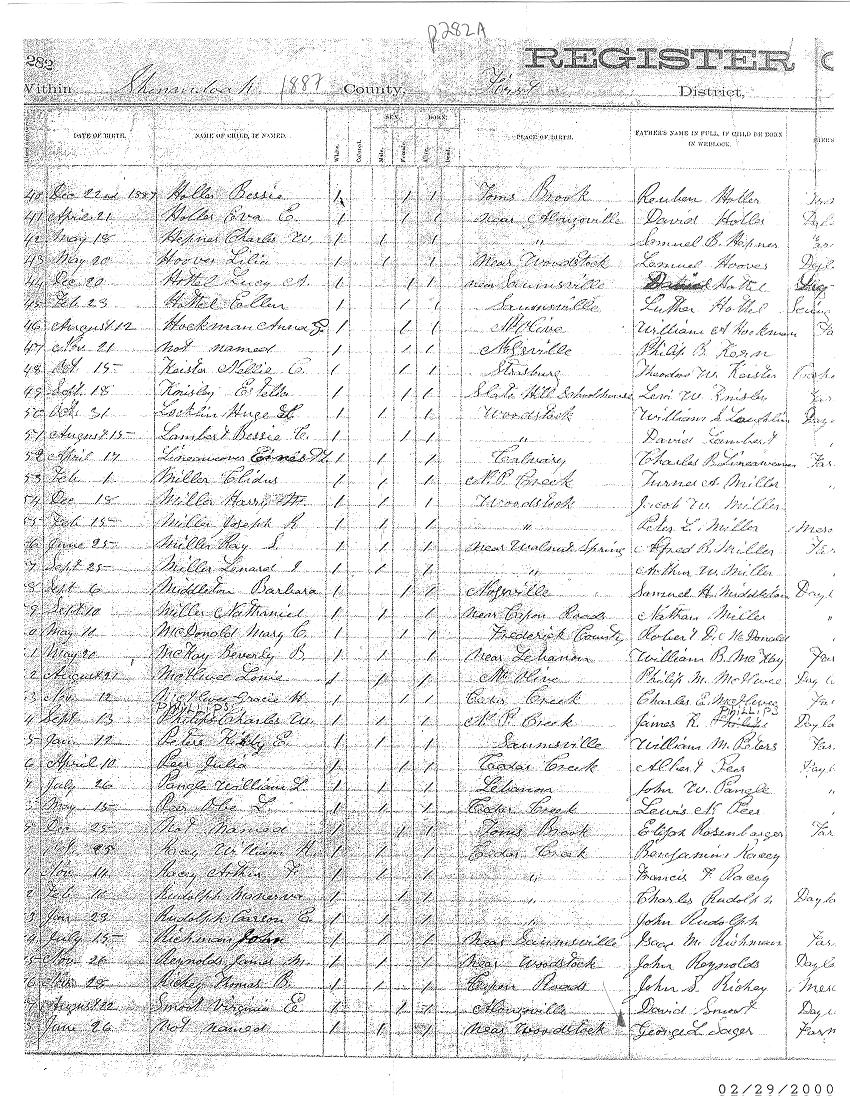 p282A
282 REGISTER
Within Shenandoah 1887 County, First District,
DATE OF BIRTH. NAME OF CHILD, IF NAMED. White. Colored. SEX. Male. Female. BORN. Alive. Dead. PLACE OF BIRTH. FATHER'S NAME IN FULL, IF CHILD BE BORN IN WEDLOCK.
40 Dec 22nd 1887 Holler Bessie 1 1 1 Toms Brook Reuben Holler
41 April 21 Holler Eva C. 1 1 1 near Alonzoville David Holler
42 May 18 Hepner Charles W. 1 1 1 " Samuel E. Hepner
43 May 20 Hoover Lilia 1 1 1 Near Woodstock Lemuel Hoover
44 Dec 20 Hottel Lucy A. 1 1 1 near Saumsville Hottel
45 Feb 23 Hottel 1 1 1 Saumsville Luther Hottel
46 August 12 Hockman Anna F 1 1 1 Mt Olive William H Hockman Fa
47 Nov. 21 not named 1 1 1 Philip B. Kern
48 Oct. 15 Keister Nellie C. 1 1 1 Strasburg Theodore W. Keister
49 Sept. 18 1 1 1 Slate Hill Schoolhouse Levi W.
50 Oct. 31 1 1 1 Woodstock William S. Laughlin
51 August 15 Lambert Bessie C. 1 1 1 " David Lambert
52 April 17 Lineweaver 1 1 1 Calvary Charles B. Lineweaver Far
53 Feb 1 Miller Clidus 1 1 1 N. P. Creek Turner A. Miller "
54 Dec 18 Miller Harry M. 1 1 1 Woodstock Jacob W. Miller
55 Feb 15 Miller Joseph R 1 1 1 " Peter L. Miller
6 June 25 Miller Ray S. 1 1 1 near Walnut Spring Alfred R. Miller Far
7 Sept 25 Miller Lenard I 1 1 1 " Arthur W. Miller
8 Sept 6 Middleton Barbara 1 1 1 Samuel H. Middleton Dayl
9 Sept. 10 Miller Nathaniel 1 1 1 near Capon Roads Nathan Miller "
0 May 10 McDonald Mary C. 1 1 1 Frederick County Robert D. McDonald
1 May 20 McKay Beverly B. 1 1 1 near Lebanon William B. McKay Far
2 August 21 McIlwee Louie 1 1 1 Mt Olive Philip M. McIlwee
3 Nov. 12 McIlwee Gracie H. 1 1 1 Cedar Creek Charles E. McIlwee
PHILLIPS PHILLIPS
4 Sept. 13 Philips Charles W. 1 1 1 N. P. Creek James R. Philips Dayla
5 Jan. 12 Peters Kirby E. 1 1 1 Saumsville William M. Peters Far.
6 April 10 Peer Julia 1 1 1 Cedar Creek Albert Peer Dayl
7 July 26 Pangle William L. 1 1 1 Lebanon John W. Pangle "
May 15 Peer Obe L. 1 1 1 Cedar Creek Lewis N. Peer
9 Dec 25 Not Named 1 1 1 Toms Brook Eliph Rosenbarger Far
25 Racey William H. 1 1 1 Cedar Creek Benjamin Racey
1 Nov. 14 Racey Arthur F. 1 1 1 " Francis F. Racey
2 Feb 10 Rudolph Manerva 1 1 1 " Charles Rudolph Dayla
3 Jan. 23 Rudolph Carson E. 1 1 1 " John Rudolph
4 July 15 Richman John 1 1 1 near Saumsville Isaac M. Richman Far.
5 Nov. 26 Reynolds James M. 1 1 1 near Woodstock John Reynolds Dayla
6 Nov. 28 Richey Thomas B. 1 1 1 Capon Roads John S. Richey Mer
7 August 22 Smoot Virginia E 1 1 1 Alonzville David Smoot Day
8 June 26 not named 1 1 1 near Woodstock George L. Sager Farm
02/29/2000